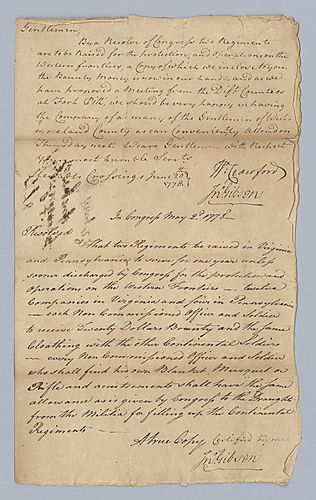 Gentlemen,
By a Resolve of Congress two Regiments
are to be Raised for the protection, and operations on the
Western frontiers, a Copy of which we inclose
the Bounty Money is now in our hands, and as we
have proposed a Meeting from the Diff. Counties
at Fort Pitt, we should be very happy in having
the Company, of as many, of the Gentlemen of West-
moreland County as can Conveniently attend on
Thursday next We are Gentlemen with Respect
your most humble Servts
Crossings June 20
1778
Wm Crawford
Jno Gibson
In Congress May 2d 1778
Resolved
That two Regiments be raised in Virginia
and Pennsylvania to serve for one year unless
sooner discharged by Congress for the protection and
operations on the Western Frontiers — twelve
Companies in Virginia and four in Pennsylvania
— each Non Commissioned Officer and Soldier
to receive Twenty Dollars Bounty and the same
Cloathing with the other Continental Soldiers
— every Non Commissioned Officer and Soldier
who shall find his own Blanket Musquet or
Rifle and accoutrements shall have the same
allowance as is given by Congress to the Draughts
from the Militia for filling up the Continental
Regiments —
A true Copy Certified
Jno Gibson